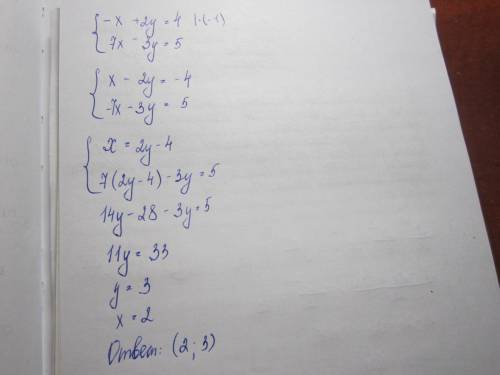 {-x + 2y = 4 |·(-1)
7x - 3y = 5
{x - 2y = -4
-7x - 3y = 5
{x = 2y - 4
7(2y - 4) - 3y = 5
14y - 28 - 3y = 5
11y = 33
y = 3
x = 2
Ответ: (2; 3)